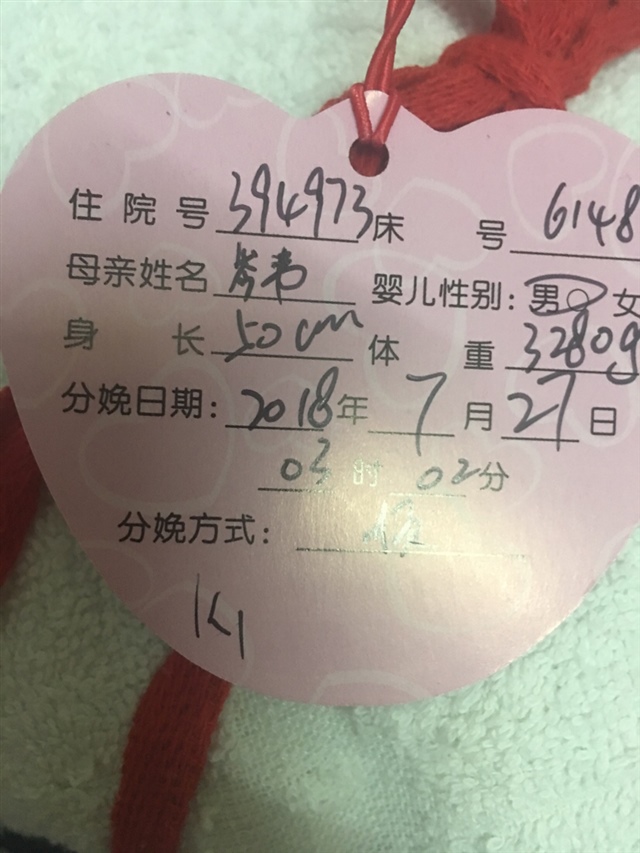 住院号 394973 床号 6148
母亲姓名 婴儿性别：男 女
身长 50cm 体重 3280g
分娩日期：2018年7月27日
03时02分
分娩方式：